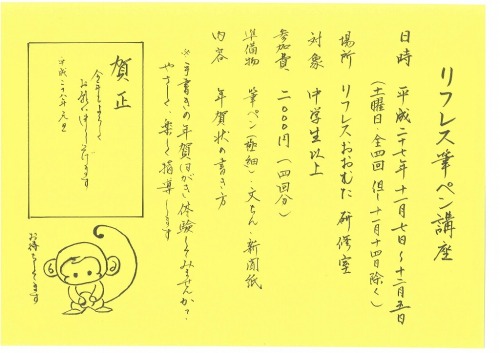 リフレス筆ペン講座
日時　平成二十七年十一月七日～十二月五日
（土曜日 全四回 但し十一月十四日除く）
場所　リフレスおおむた 研修室
対象　中学生以上
参加費　二〇〇〇円（四回分）
準備物　筆ペン（極細）・文ちん・新聞紙
内容　年賀状の書き方
※手書きの年賀はがき体験してみませんか？
やさしく楽しく指導します
賀正
今年もよろしく
お願い申し上げます
平成二十八年 元旦
お待ちしてます